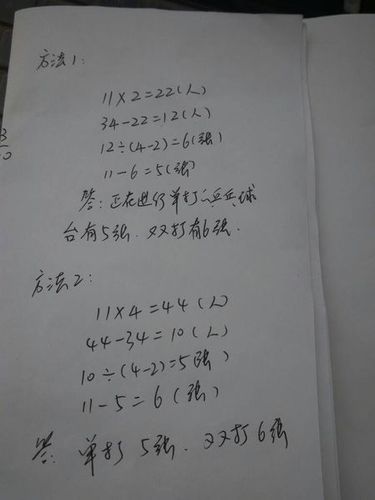 方法1:
11×2=22(人)
34-22=12(人)
12÷(4-2)=6(張)
11-6=5(張)
答:正在进行单打的乒乓球
台有5張.双打有6張.
方法2:
11×4=44(人)
44-34=10(人)
10÷(4-2)=5(張)
11-5=6(張)
答:单打5張.双打6張